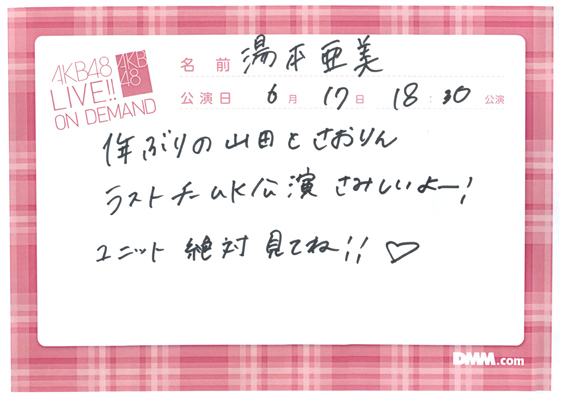 AKB48
LIVE!!
ON DEMAND
AKB
48
名前 湯本亜美
公演日 6月 17日 18:30 公演
1年ぶりの山田とさおりん
ラストチームK公演 さみしいよー!
ユニット 絶対 見てね!! ♡
DMM.com